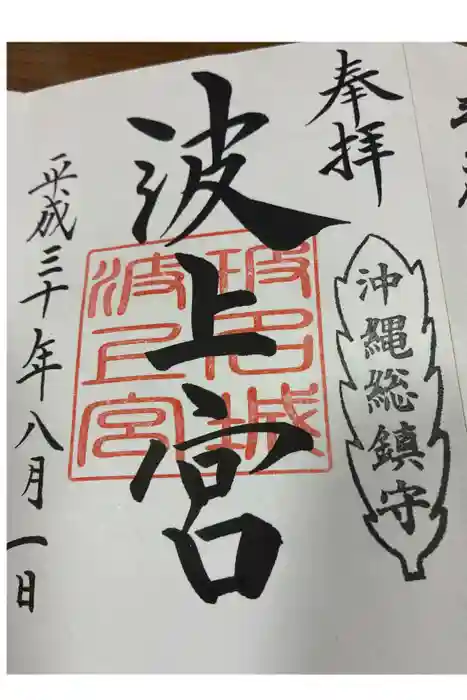 奉拝
沖縄総鎮守
波上宮
波上宮
平成三十年八月一日